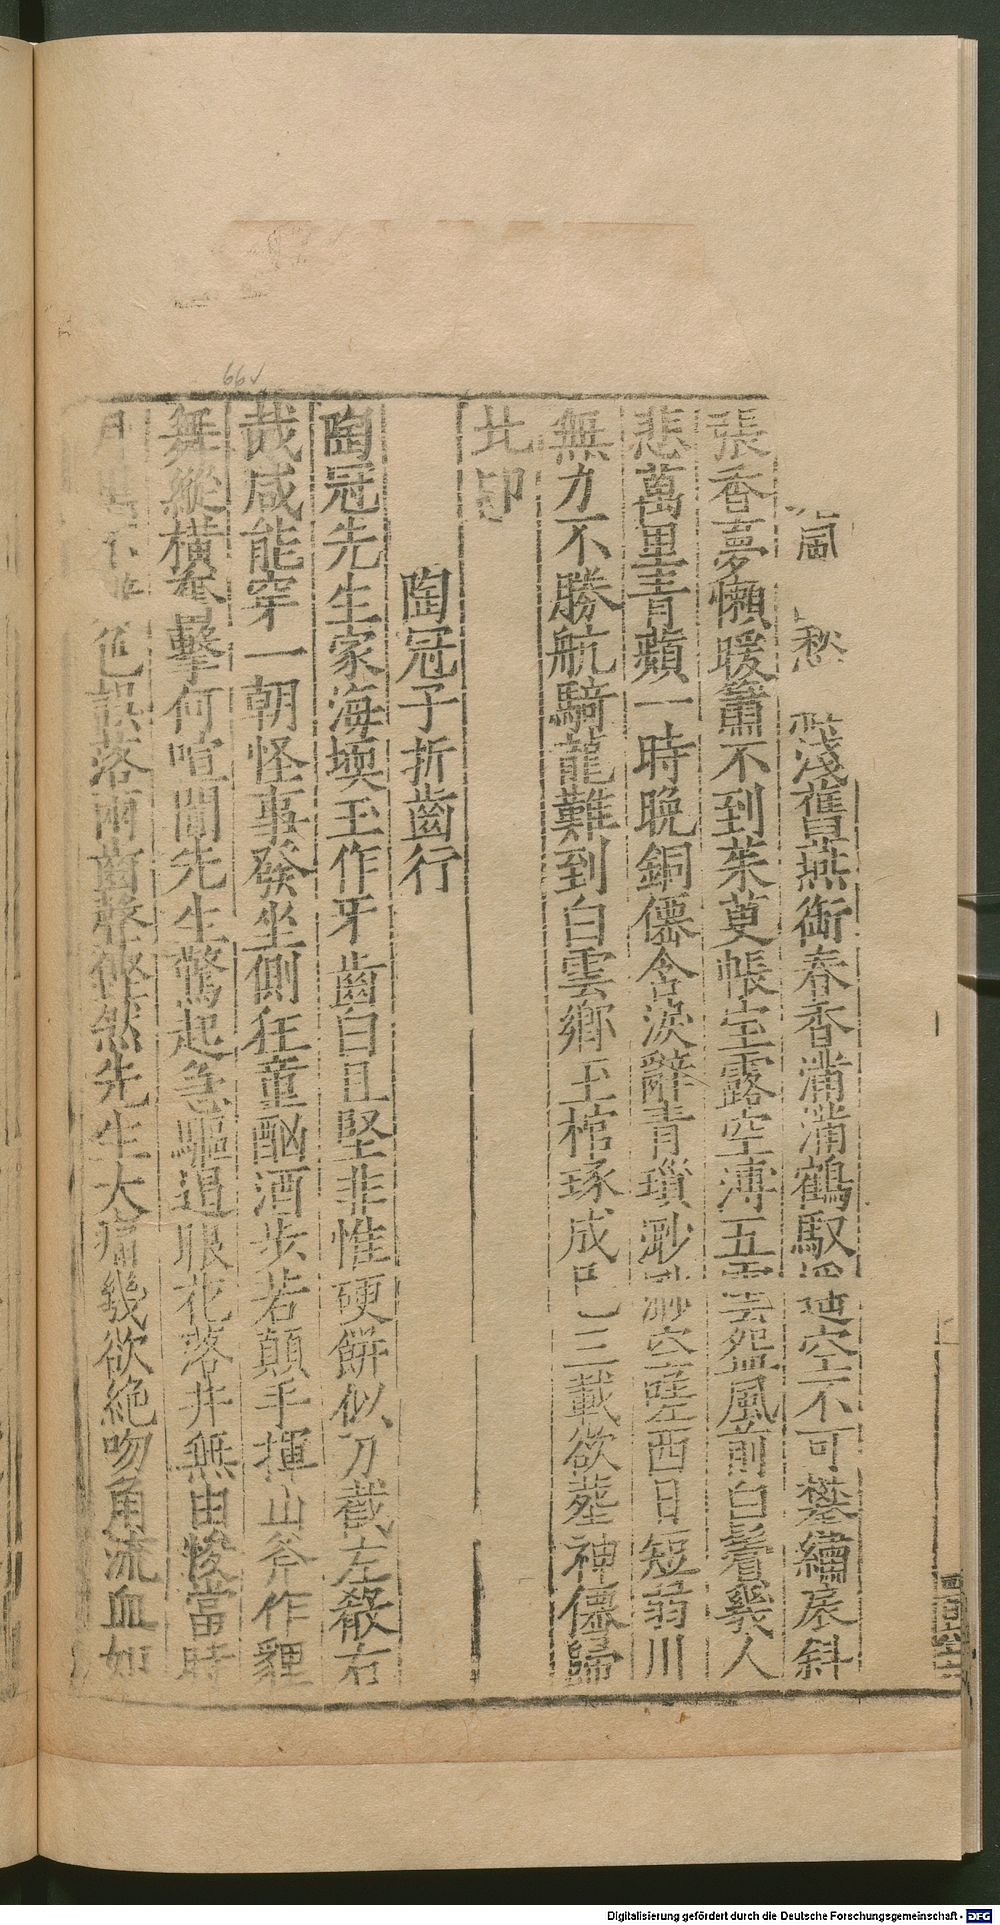 風愁淺舊燕銜春香滿滿鶴馭空不可攀繡扆斜
張香夢懶暖簫不到茱萸帳宝露空溥五雲怨風前白鬢幾人
悲萬里青蘋一時晩銅僊含淚辭青瑣渺渺空嗟西日短翦川
無力不勝航騎龍難到白雲鄉玉棺琢成巳三載欲葬神僊歸
北卬
陶冠子折齒行
陶冠先生家海堧玉作牙齒白且堅非惟硬餅似刀截左殽右
胾咸能穿一朝怪事發坐側狂童酗酒步若顛手揮山斧作貍
舞縱橫奮擊何喧闐先生驚起急驅退眼花落井無由悛當時
月色誤落兩齒聲鏗然先生大痛幾欲絶吻角流血如
66v
Digitalisierung gefördert durch die Deutsche Forschungsgemeinschaft - DFG